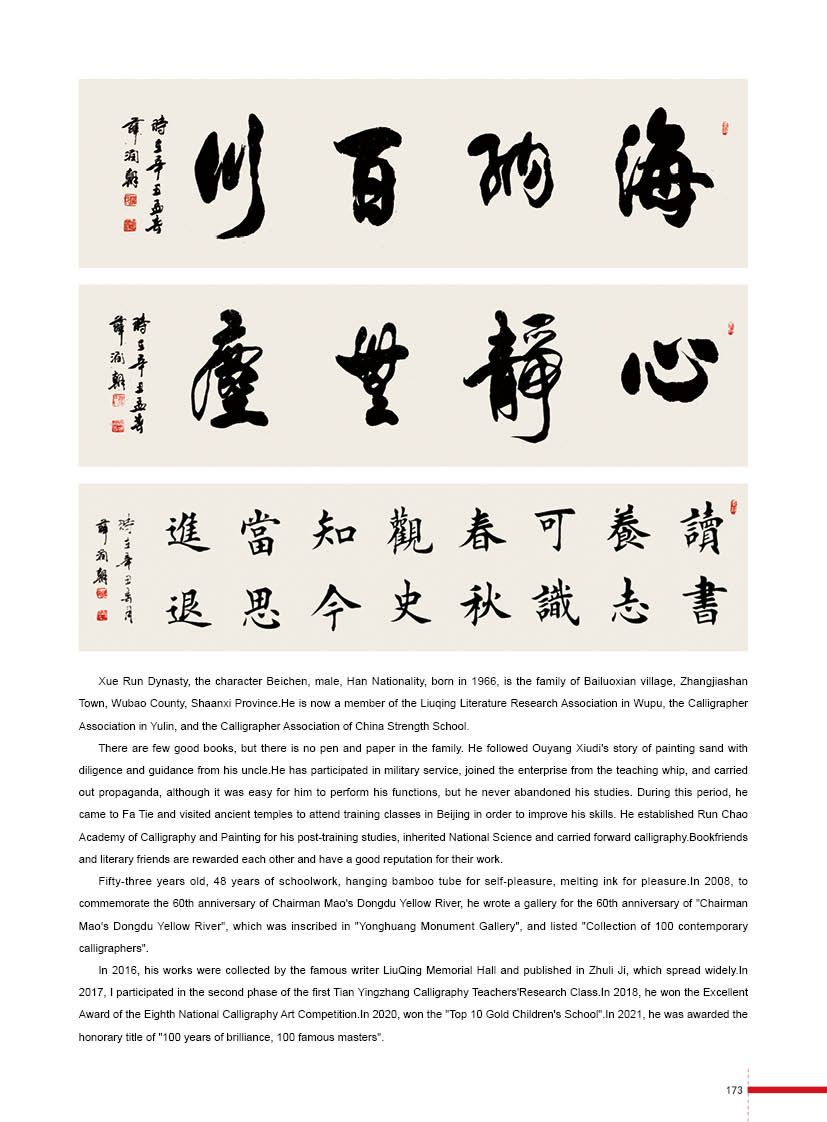 海納百川
時在辛丑孟春
薛润朝
心靜無塵
時在辛丑孟春
薛润朝
讀書
養志
可識
春秋
觀史
知今
當思
進退
時在辛丑春月
薛润朝
Xue Run Dynasty, the character Beichen, male, Han Nationality, born in 1966, is the family of Bailuoxian village, Zhangjiashan
Town, Wubao County, Shaanxi Province.He is now a member of the Liuqing Literature Research Association in Wupu, the Calligrapher
Association in Yulin, and the Calligrapher Association of China Strength School.
There are few good books, but there is no pen and paper in the family. He followed Ouyang Xiudi's story of painting sand with
diligence and guidance from his uncle.He has participated in military service, joined the enterprise from the teaching whip, and carried
out propaganda, although it was easy for him to perform his functions, but he never abandoned his studies. During this period, he
came to Fa Tie and visited ancient temples to attend training classes in Beijing in order to improve his skills. He established Run Chao
Academy of Calligraphy and Painting for his post-training studies, inherited National Science and carried forward calligraphy.Bookfriends
and literary friends are rewarded each other and have a good reputation for their work.
Fifty-three years old, 48 years of schoolwork, hanging bamboo tube for self-pleasure, melting ink for pleasure.In 2008, to
commemorate the 60th anniversary of Chairman Mao's Dongdu Yellow River, he wrote a gallery for the 60th anniversary of "Chairman
Mao's Dongdu Yellow River", which was inscribed in "Yonghuang Monument Gallery", and listed "Collection of 100 contemporary
calligraphers".
In 2016, his works were collected by the famous writer LiuQing Memorial Hall and published in Zhuli Ji, which spread widely.In
2017, I participated in the second phase of the first Tian Yingzhang Calligraphy Teachers'Research Class.In 2018, he won the Excellent
Award of the Eighth National Calligraphy Art Competition.In 2020, won the "Top 10 Gold Children's School".In 2021, he was awarded the
honorary title of "100 years of brilliance, 100 famous masters".
173